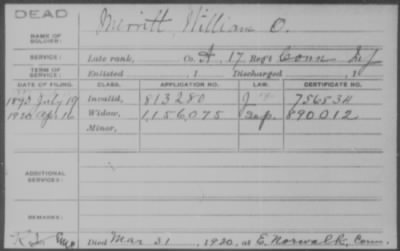 DEAD
NAME OF SOLDIER: Merritt, William O.
SERVICE: Late rank, Co. A, 17 Reg't Conn Inf
TERM OF SERVICE: Enlisted , 1 Discharged , 1
DATE OF FILING. CLASS. APPLICATION NO. LAW. CERTIFICATE NO.
1893 July 19 Invalid, 813280 756534
1920 Apr 16 Widow, 1,156,075 890012
Minor,
ADDITIONAL SERVICES:
REMARKS:
Died Mar 31, 1920, at E. Norwalk, Conn.